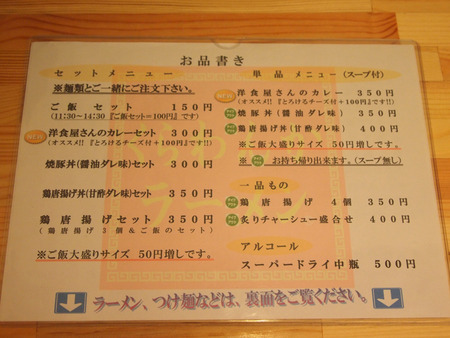 お品書き
セットメニュー
※麺類とご一緒にご注文下さい。
ご飯セット 150円
(11:30～14:30『ご飯セット=100円』です)
洋食屋さんのカレーセット 300円
(オススメ!!『とろけるチーズ付+100円』です!!)
焼豚丼(醤油ダレ味)セット 300円
鶏唐揚げ丼(甘酢ダレ味)セット 350円
鶏唐揚げセット 350円
(鶏唐揚げ3個&ご飯のセット)
※ご飯大盛りサイズ 50円増しです。
単品 メニュー(スープ付)
洋食屋さんのカレー 350円
(オススメ!!『とろけるチーズ付+100円』です!!)
焼豚丼(醤油ダレ味) 350円
鶏唐揚げ丼(甘酢ダレ味) 400円
※ご飯大盛りサイズ 50円増しです。
※ お持ち帰り出来ます。(スープ無し)
一品もの
鶏唐揚げ 4個 350円
炙りチャーシュー盛合せ 400円
アルコール
スーパードライ中瓶 500円
ラーメン、つけ麺などは、裏面をご覧ください。